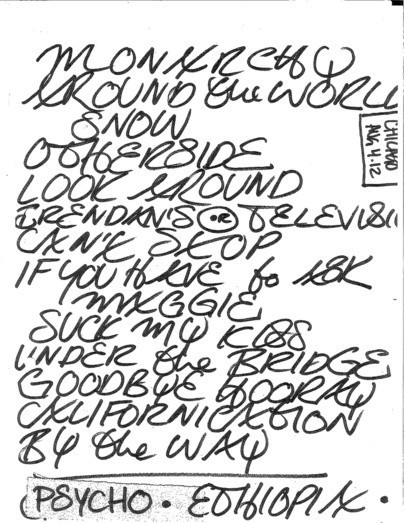 MONARCHY
AROUND the WORL
SNOW
OTHERSIDE
LOOK AROUND
BRENDAN'S OR TELEVISI
CAN'T STOP
IF YOU HAVE to ASK
MAGGIE
SUCK MY KISS
UNDER the BRIDGE
GOODBYE HOORAY
CALIFORNICATION
BY the WAY
PSYCHO · ETHIOPIA ·
CHICAGO
AUG 4·12